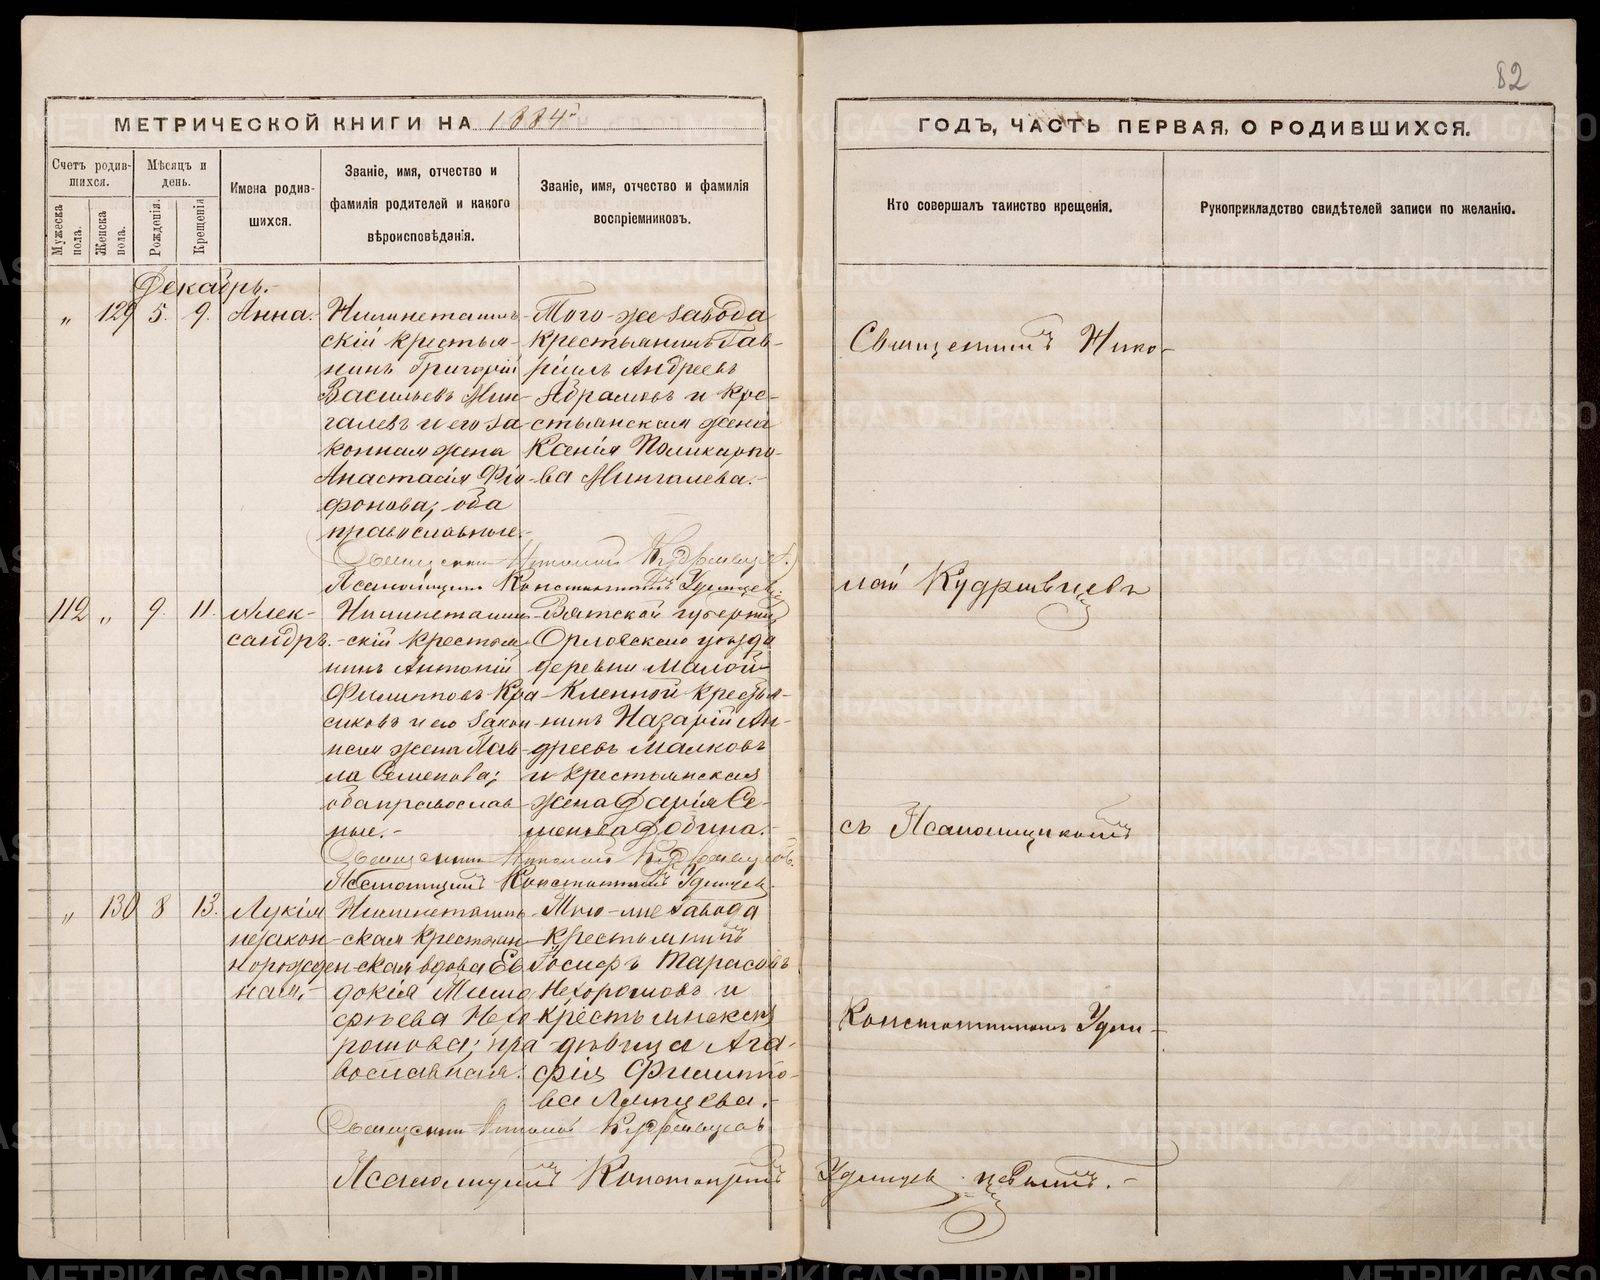 82
МЕТРИЧЕСКОЙ КНИГИ НА 1884
ГОДЪ, ЧАСТЬ ПЕРВАЯ, О РОДИВШИХСЯ.
Счетъ родив-
шихся.
Мужеска пола.
Женска пола.
Мѣсяцъ и
день.
Рожденія.
Крещенія
Имена родив-
шихся.
Званіе, имя, отчество и
фамилія родителей и какого
вѣроисповѣданія.
Званіе, имя, отчество и фамилія
воспріемниковъ.
Кто совершалъ таинство крещенія.
Рукоприкладство свидѣтелей записи по желанію.
Декабрь.
" 129 5. 9. Анна.
Нижнетагиль-
скій крестья-
нинъ Григорій
Васильевъ Мин-
галевъ и его за
конная жена
Анастасія
фонова; оба
православные.-
Того-же завода
крестьянинъ Гав-
ріилъ Андреевъ
Абрамовъ и кре-
стьянская жена
Ксенія Поликарпо-
ва Мингалева.-
Священникъ Николай Кудрявцевъ
Псаломщикъ Константинъ Удинцевъ
112 " 9. 11. Алек-
сандръ.-
Нижнетагиль-
скій крестья
нинъ Антоній
Филипповъ Кра-
сиковъ и его закон
ная жена Пав-
ла Семенова;
оба православ
ные.-
Вятской губерніи
Орловскаго уѣзда
деревни Малой
Кленной крестья-
нинъ Назарій Ан-
дреевъ Малковъ
и крестьянская
жена Дарія Се-
менова
Священникъ Николай Кудрявцевъ
Псаломщикъ Константинъ Удинцевъ
" 130 8 13. Лукія
незакон-
норожден-
ная.-
Нижнетагиль-
ская крестьян-
ская вдова Ев
докія Тимо
фѣева Нехо
рошова; пра
вославная.
Того-же завода
крестьянинъ
Іосифъ Тарасовъ
Нехорошовъ и
крестьянская
дѣвица Ага-
фія Филиппо-
ва Ляпцева.-
Священникъ Николай Кудрявцевъ
Псаломщикъ Константинъ Удинцевъ
Священникъ Нико-
лай Кудрявцевъ
съ Псаломщикомъ
Константиномъ Удин-
цевымъ.-
METRIKI.GASO-URAL.RU